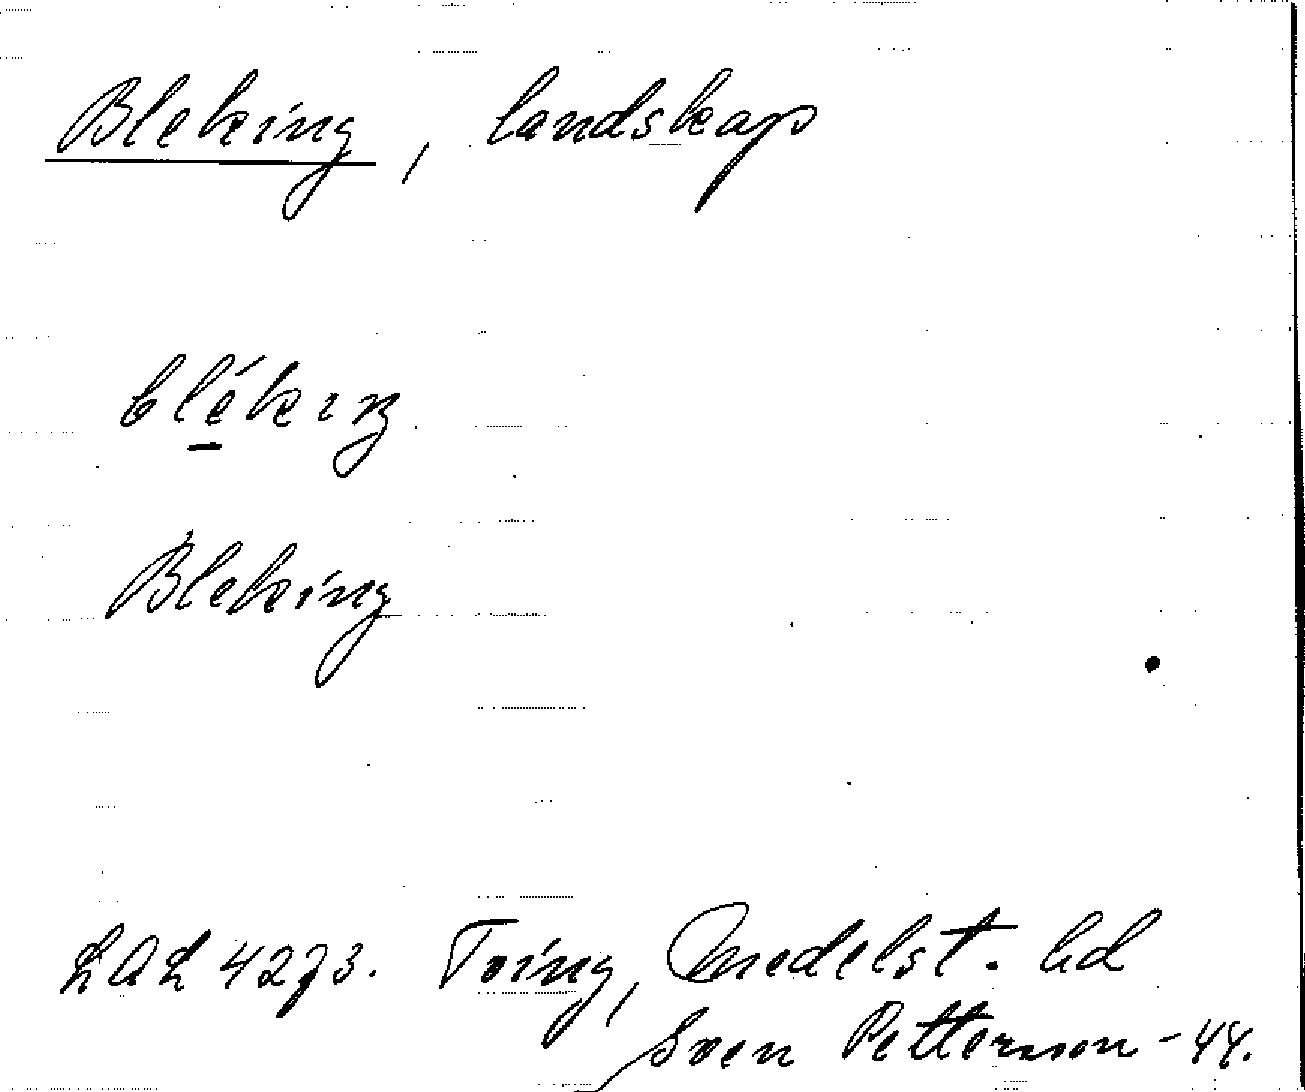 Bleking, landskap
blékıŋ
Bleking
LAL 4273. Tving, Medelst. hd
Sven Petterson -44.